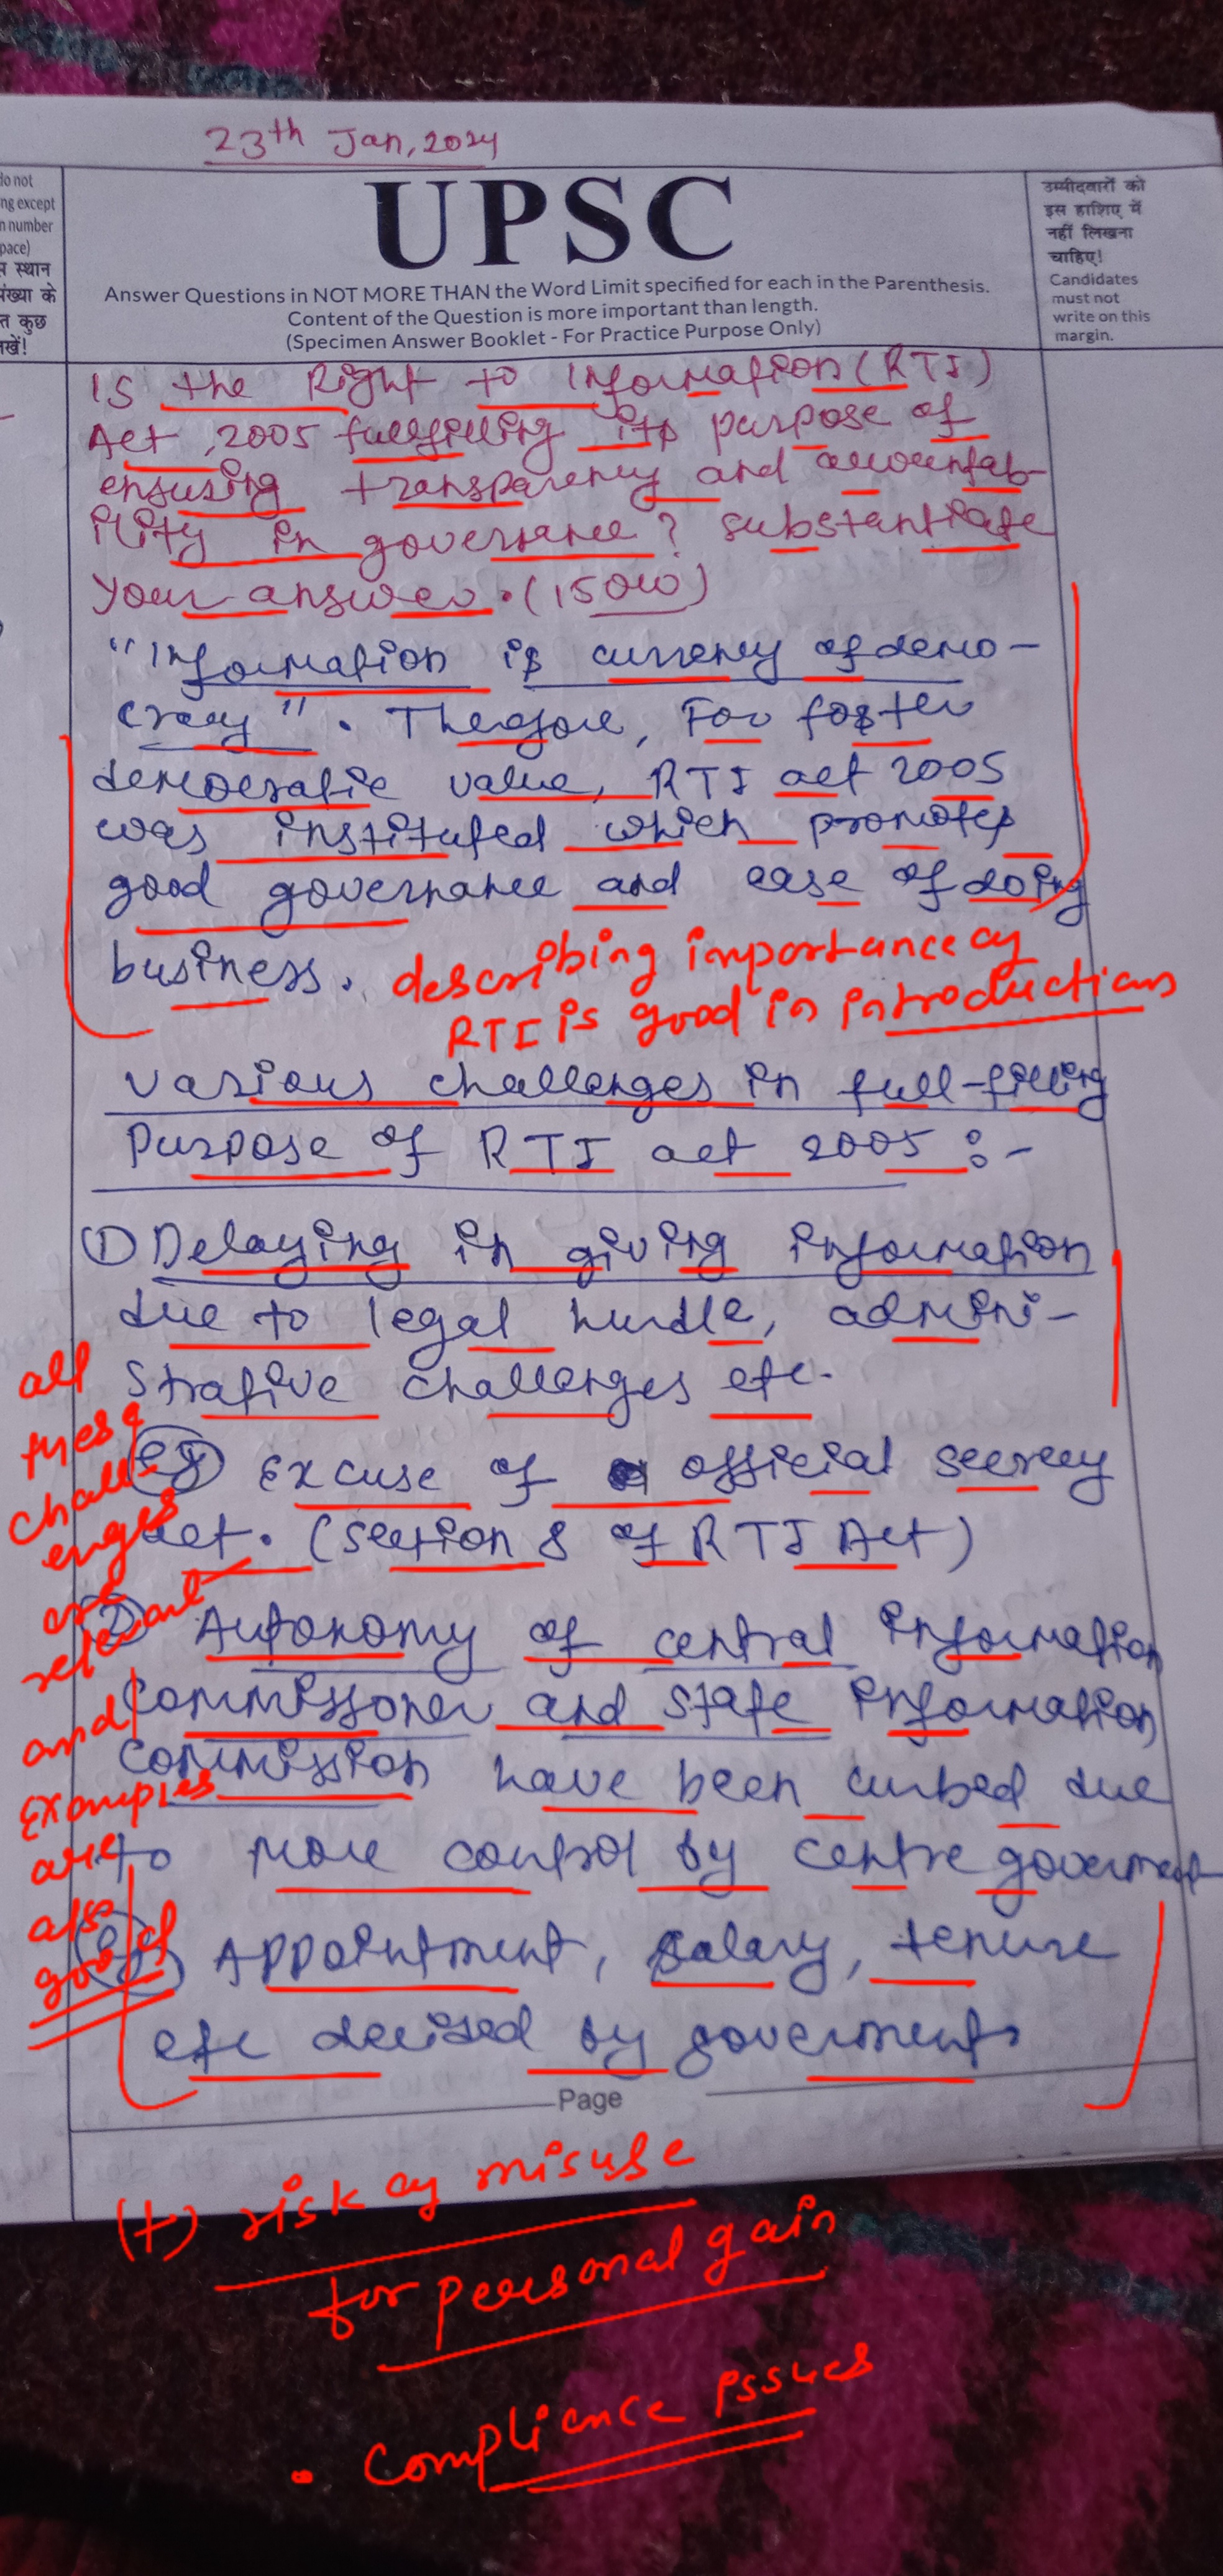 23th Jan, 2024
do not
ng except
n number
pace)
स्थान
संख्या के
कुछ
UPSC
Answer Questions in NOT MORE THAN the Word Limit specified for each in the Parenthesis.
Content of the Question is more important than length.
(Specimen Answer Booklet - For Practice Purpose Only)
उम्मीदवारों को
इस हाशिए में
नहीं लिखना
चाहिए!
Candidates
must not
write on this
margin.
Is the Right to Information (RTI)
Act, 2005 fullfilling its purpose of
ensuring transparency and accountab-
ility in governance? substantiate
your answer. (150W)
"Information is currency of demo-
cracy". Therefore, For foster
democratic value, RTI act 2005
was instituted which promotes
good governance and ease of doing
business.
describing importance of
RTI is good in introduction
various challenges in full-filling
Purpose of RTI act 2005 :-
① Delaying in giving information
due to legal hurdle, admini-
strative challenges etc.
eg Excuse of official secrecy
act. (section 8 of RTI Act)
② Autonomy of central information
commissioner and state information
commission have been curbed due
to more control by centre government
eg Appointment, salary, tenure
etc decided by government.
all
these
chall-
enges
are
relevant
and
Examples
are
also
good
Page
(+) risk of misuse
for personal gain
• Complience issues